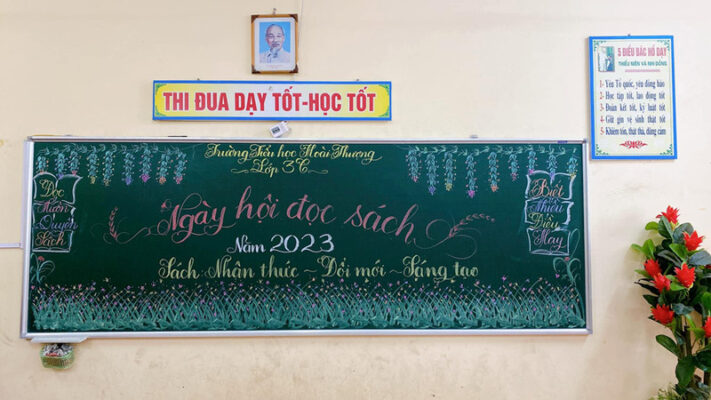 THI ĐUA DẠY TỐT-HỌC TỐT
5 ĐIỀU BÁC HỒ DẠY
THIẾU NIÊN VÀ NHI ĐỒNG
1- Yêu Tổ quốc, yêu đồng bào
2- Học tập tốt, lao động tốt
3- Đoàn kết tốt, kỷ luật tốt
4- Giữ gìn vệ sinh thật tốt
5- Khiêm tốn, thật thà, dũng cảm
Trường Tiểu học Hoài Thượng
Lớp 3C
Đọc
Muôn
Quyển
Sách
Ngày hội đọc sách
Năm 2023
Sách: Nhận thức ~ Đổi mới ~ Sáng tạo
Biết
Nhiều
Điều
Hay